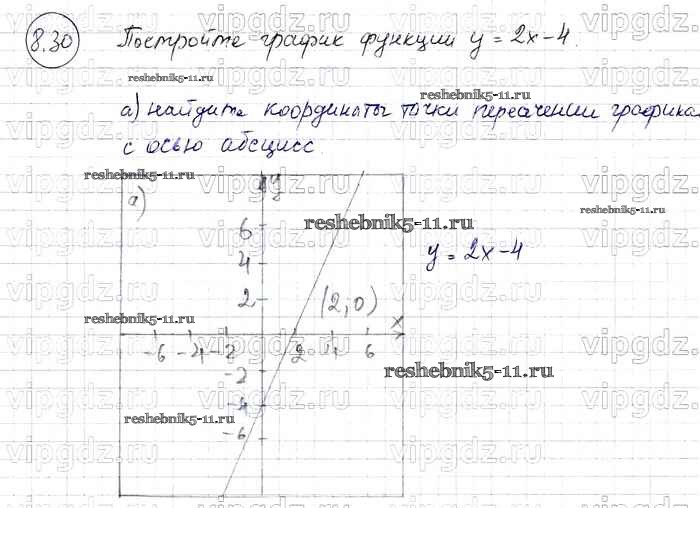 8.30 Постройте график функции y = 2x-4.
а) найдите координаты точки пересечении графика
с осью абсцисс.
а)
y
6
4
2
(2;0)
y = 2x-4
x
-6 -4 -2 2 4 6
-2
-4
-6
reshebnik5-11.ru
reshebnik5-11.ru
reshebnik5-11.ru
reshebnik5-11.ru
reshebnik5-11.ru
reshebnik5-11.ru
reshebnik5-11.ru
reshebnik5-11.ru
vipgdz.ru